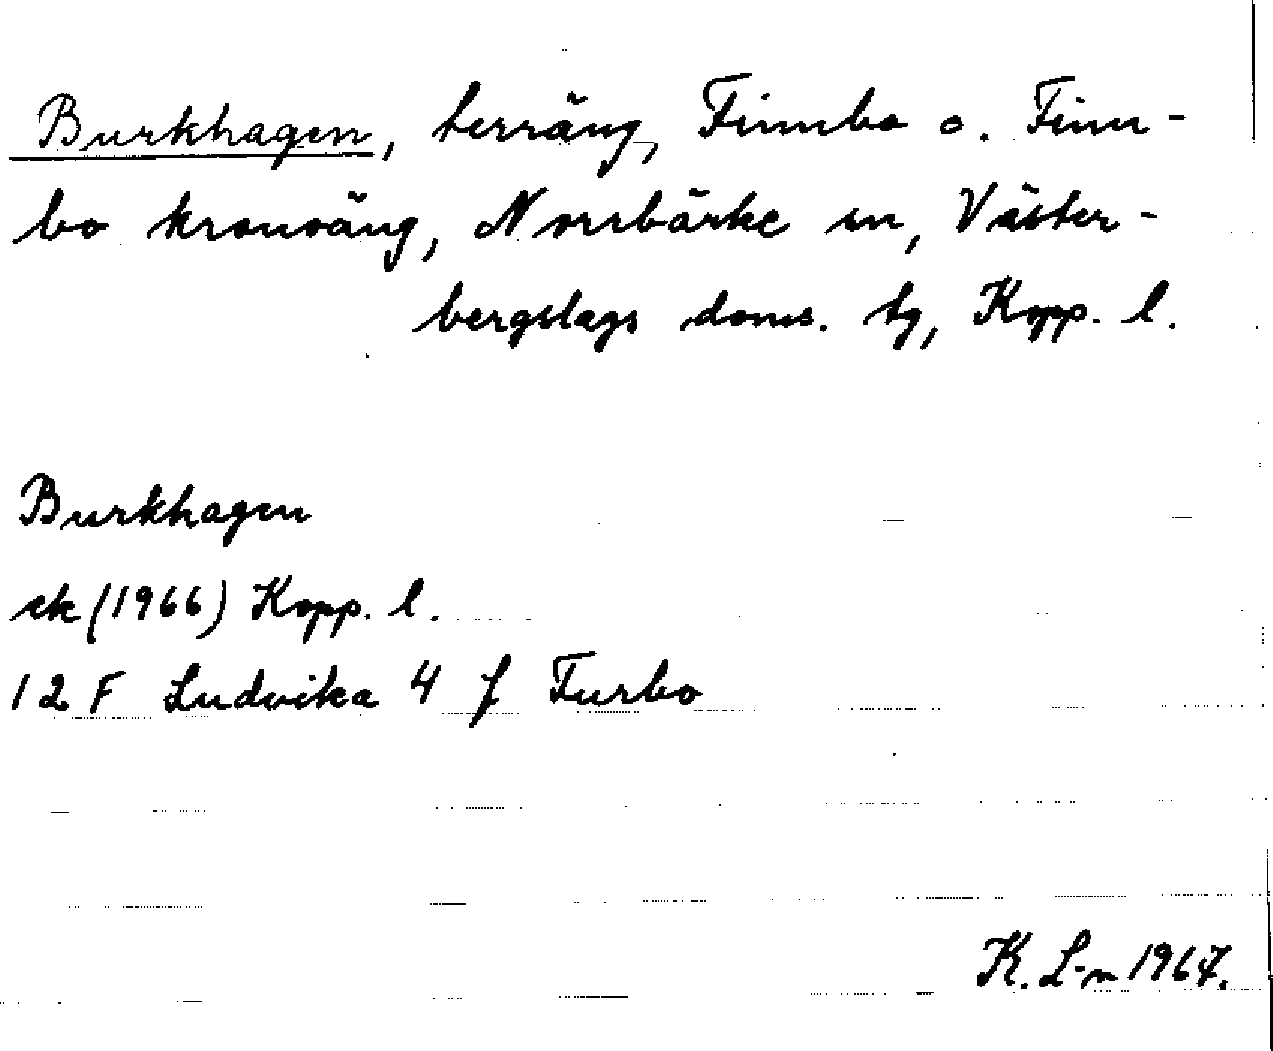 Burkhagen, terräng, Finnbo o. Finn-
bo kronoäng, Norrbärke sn, Väster-
bergslags doms. tg, Kopp. l.
Burkhagen
ek (1966) Kopp. l.
12 F Ludvika 4 f Turbo
K. L-n 1967.